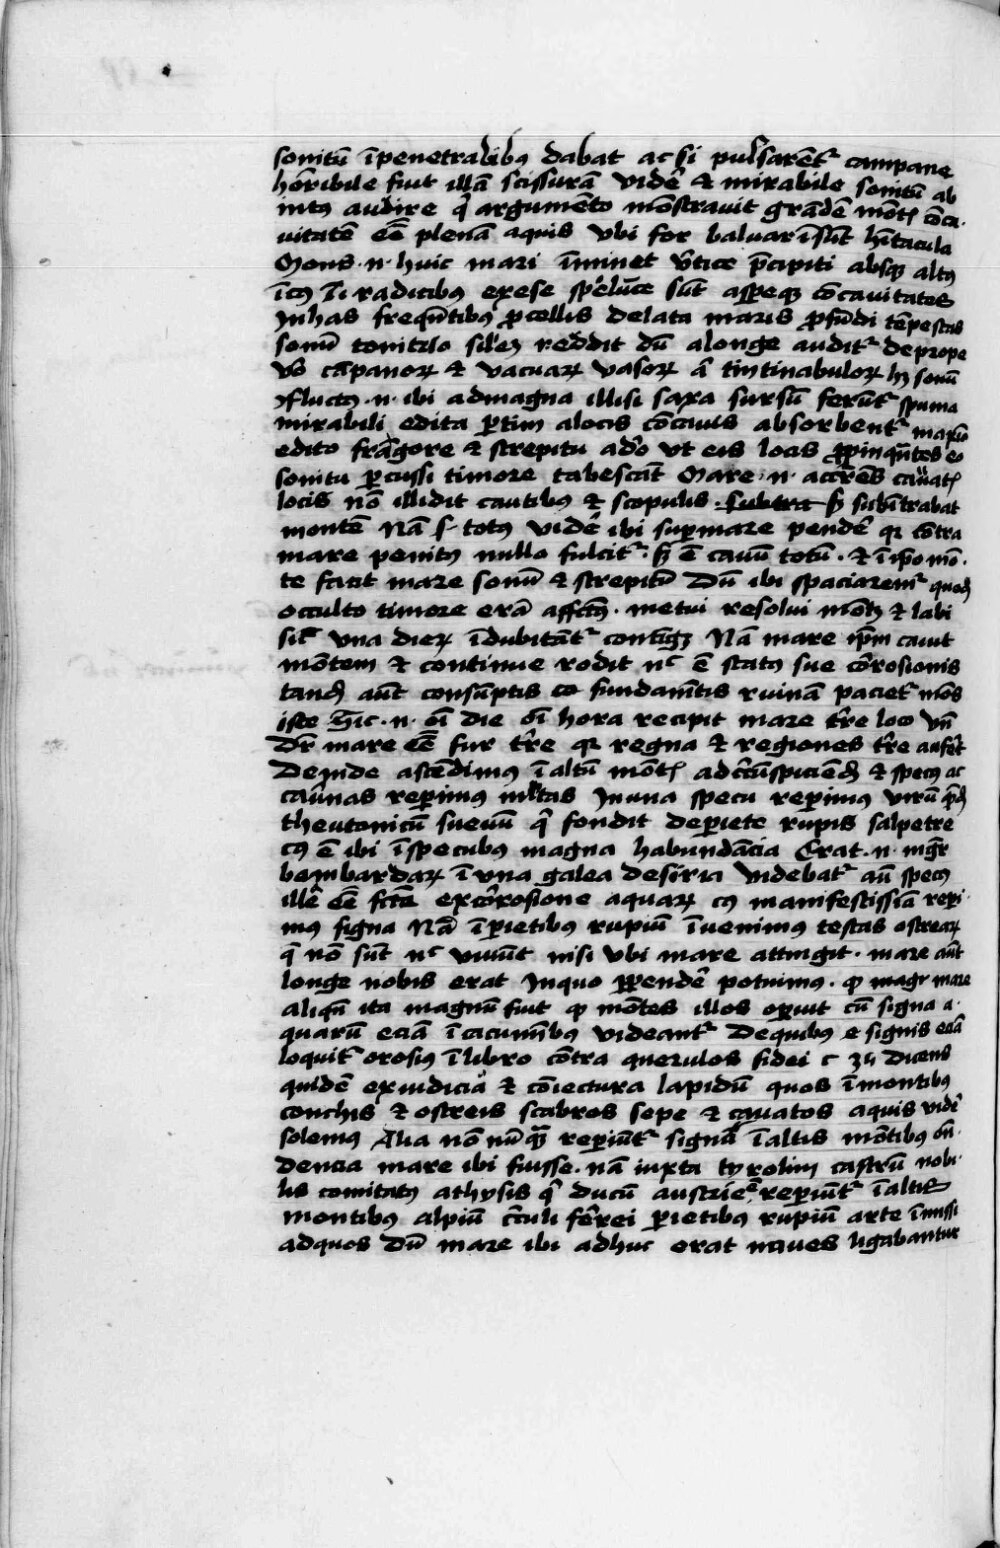 sonitū īpenetralibꝰ dabat ac si pulsarēt᷑ campane
hōribile fuit illā scissurā vidē᷑ & mirabile sonitū ab
intꝰ audire q̄ argumēto mōstravit grādē mōtꝭ cōca
uitatē eē̄ plenā aquis vbi for baluar īsūt hītacula
Mons .n. huic mari īminet v̄tice p̄cipiti absqꝫ altꝰ
radicibꝰ exese spēlūce sūt aspeqꝫ cōcauitates
Inhas freqn̄tibꝰ ꝓcellis delata maris ꝓfūdi tēpestas
sonū tonitrio silꝫ reddit dū alonge audit᷑ deprope
vō cāpanoꝝ & vacuaꝝ vasoꝝ ā tintinabuloꝝ hꝫ sonū
Fluctꝰ .n. ibi admagna illisi saxa sursū ferūt᷑ spuma
mirabili edita ꝑtim alocis cōcauis absorbent᷑ maxīo
edito frāgore & strepitu adō vt eis locis ꝓpinqn̄tes eo
sonitu ꝑcussi timore tabescāt Mare .n. accrēs cauatꝭ
locis nō illidit cautibꝰ & scopulis subītrabat
montē Nā totꝰ vidē᷑ ibi suꝑmare pendē᷑ qꝛ cōtra
mare penitꝰ nullo fulcit᷑ sꝫ ē cauū totū . & ī ip̄o mō
te facit mare sonū & strepitū Dū ibi spaciarem᷑ quodā
occulto timore erā affctꝰ . metui resolui mōtꝫ & labi
sic̄ una dieꝝ īdubitāt᷑ contīgꝫ Nā mare ip̄m cauit
mōtem & continue rodit nͨ ē statꝰ sue cōrosionis
tandꝫ aūt consūptis eo fundamētis ruinā paciet᷑ mōs
iste Sic .n. oī die oī hora recipit mare tr̄e loco vn̄
dr̄ mare eē̄ fur tr̄e qꝛ regna & regiones tr̄e aufēt
Deinde ascēdimꝰ ī altū mōtꝭ adc̄cūspiciēdꝫ & specꝰ ac
cau̇nas reꝑimꝰ ml̄tas Inuna specu reꝑimꝰ virū qēdā
theutonicū sueuū q̄ fondit deꝑiete rupis salpetre
cꝰ ē ibi īspecubꝰ magna habundācia Erat .n. mgr̄
bombardaꝝ ī vna galea desiria Videbat᷑ aū specꝰ
illē eē̄ fctā excōrosione aquaꝝ cꝰ manifestissīa reꝑi
mꝰ signa Nā īꝑietibꝰ rupiū īuenimꝰ testas ostreaꝝ
q̄ nō sūt nͨ viuūt nisi vbi mare attingit . mare aūt
longe nobis erat Inquo ꝑpendē᷑ potuimꝰ . ꝙ magr mare
aliqn̄ ita magnū fuit ꝙ mōtes illos oꝑuit cū signa a
quarū eciā ī cacumībꝰ videant᷑ Dequibꝰ e signis eciā
loquit᷑ orosiꝰ īlibro cōtra querulos fidei c 34 Dicens
quidē exiudicia & cōiectura lapidū quos īmontibꝰ
conchis & ostreis scabros sepe & cauatos aquis vidē᷑
solemꝰ Alia nō nūqꝫ̄ reꝑiūt᷑ signa īaltis mōtibꝰ on̄
dencia mare ibi fuisse . nā iuxta tyrolim castrū nobi
lis comitatꝰ athysis q̄ ducū austrie ē reꝑiūt᷑ īaltiss
montibꝰ alpiū c̄culi fērei ꝑietibꝰ rupiū arte īmissi
adquos Dū mare ibi adhuc erat naues ligabantur